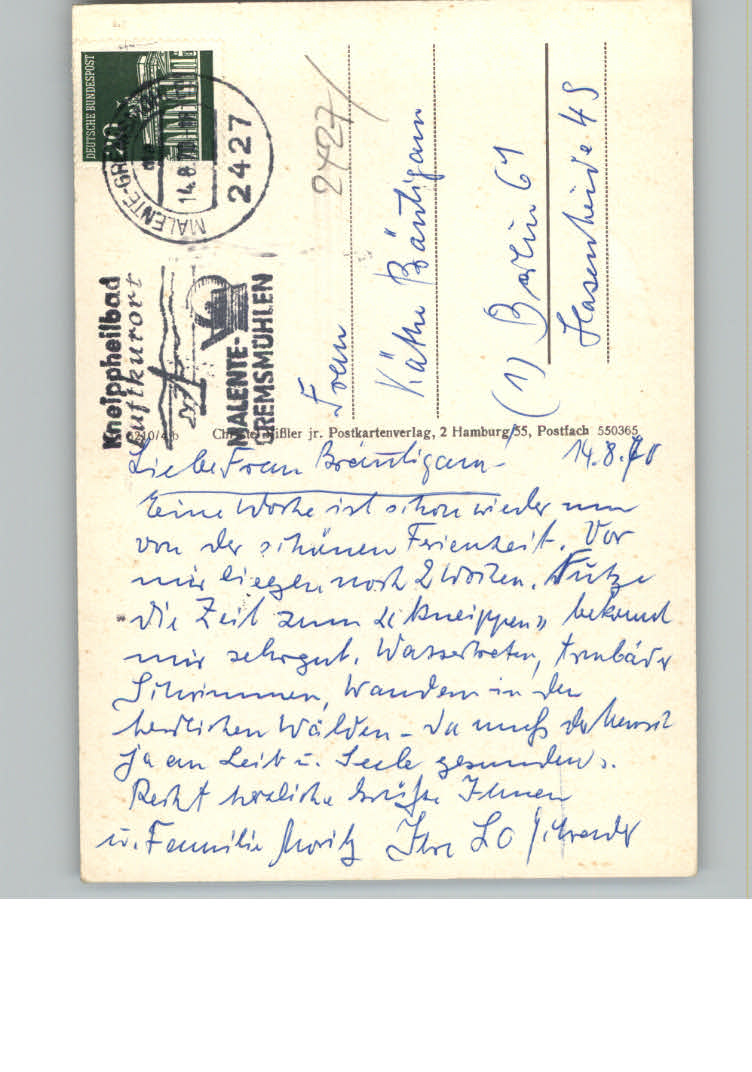 DEUTSCHE BUNDESPOST
MALENTE-GREMSMÜHLEN
14.8.70
2427
2427
Kneippheilbad
Luftkurort
MALENTE-
GREMSMÜHLEN
Frau
Käthe Bräutigam
(1) Berlin 61
Hasenheide 49
Postkartenverlag, 2 Hamburg 55, Postfach 550365
Liebe Frau Bräutigam - 14.8.70
Eine Woche ist schon wieder um
von der schönen Ferienzeit. Vor
mir liegen noch 2 Wochen. Nutze
die Zeit zum "Kneippen" bekommt
mir sehr gut. Wassertreten, Armbäder
Schwimmen, Wandern in den
herrlichen Wäldern - da muß der Mensch
ja an Leib u. Seele gesunden.
Recht herzliche Grüße Ihnen
u. Familie Moritz Ihre Lo